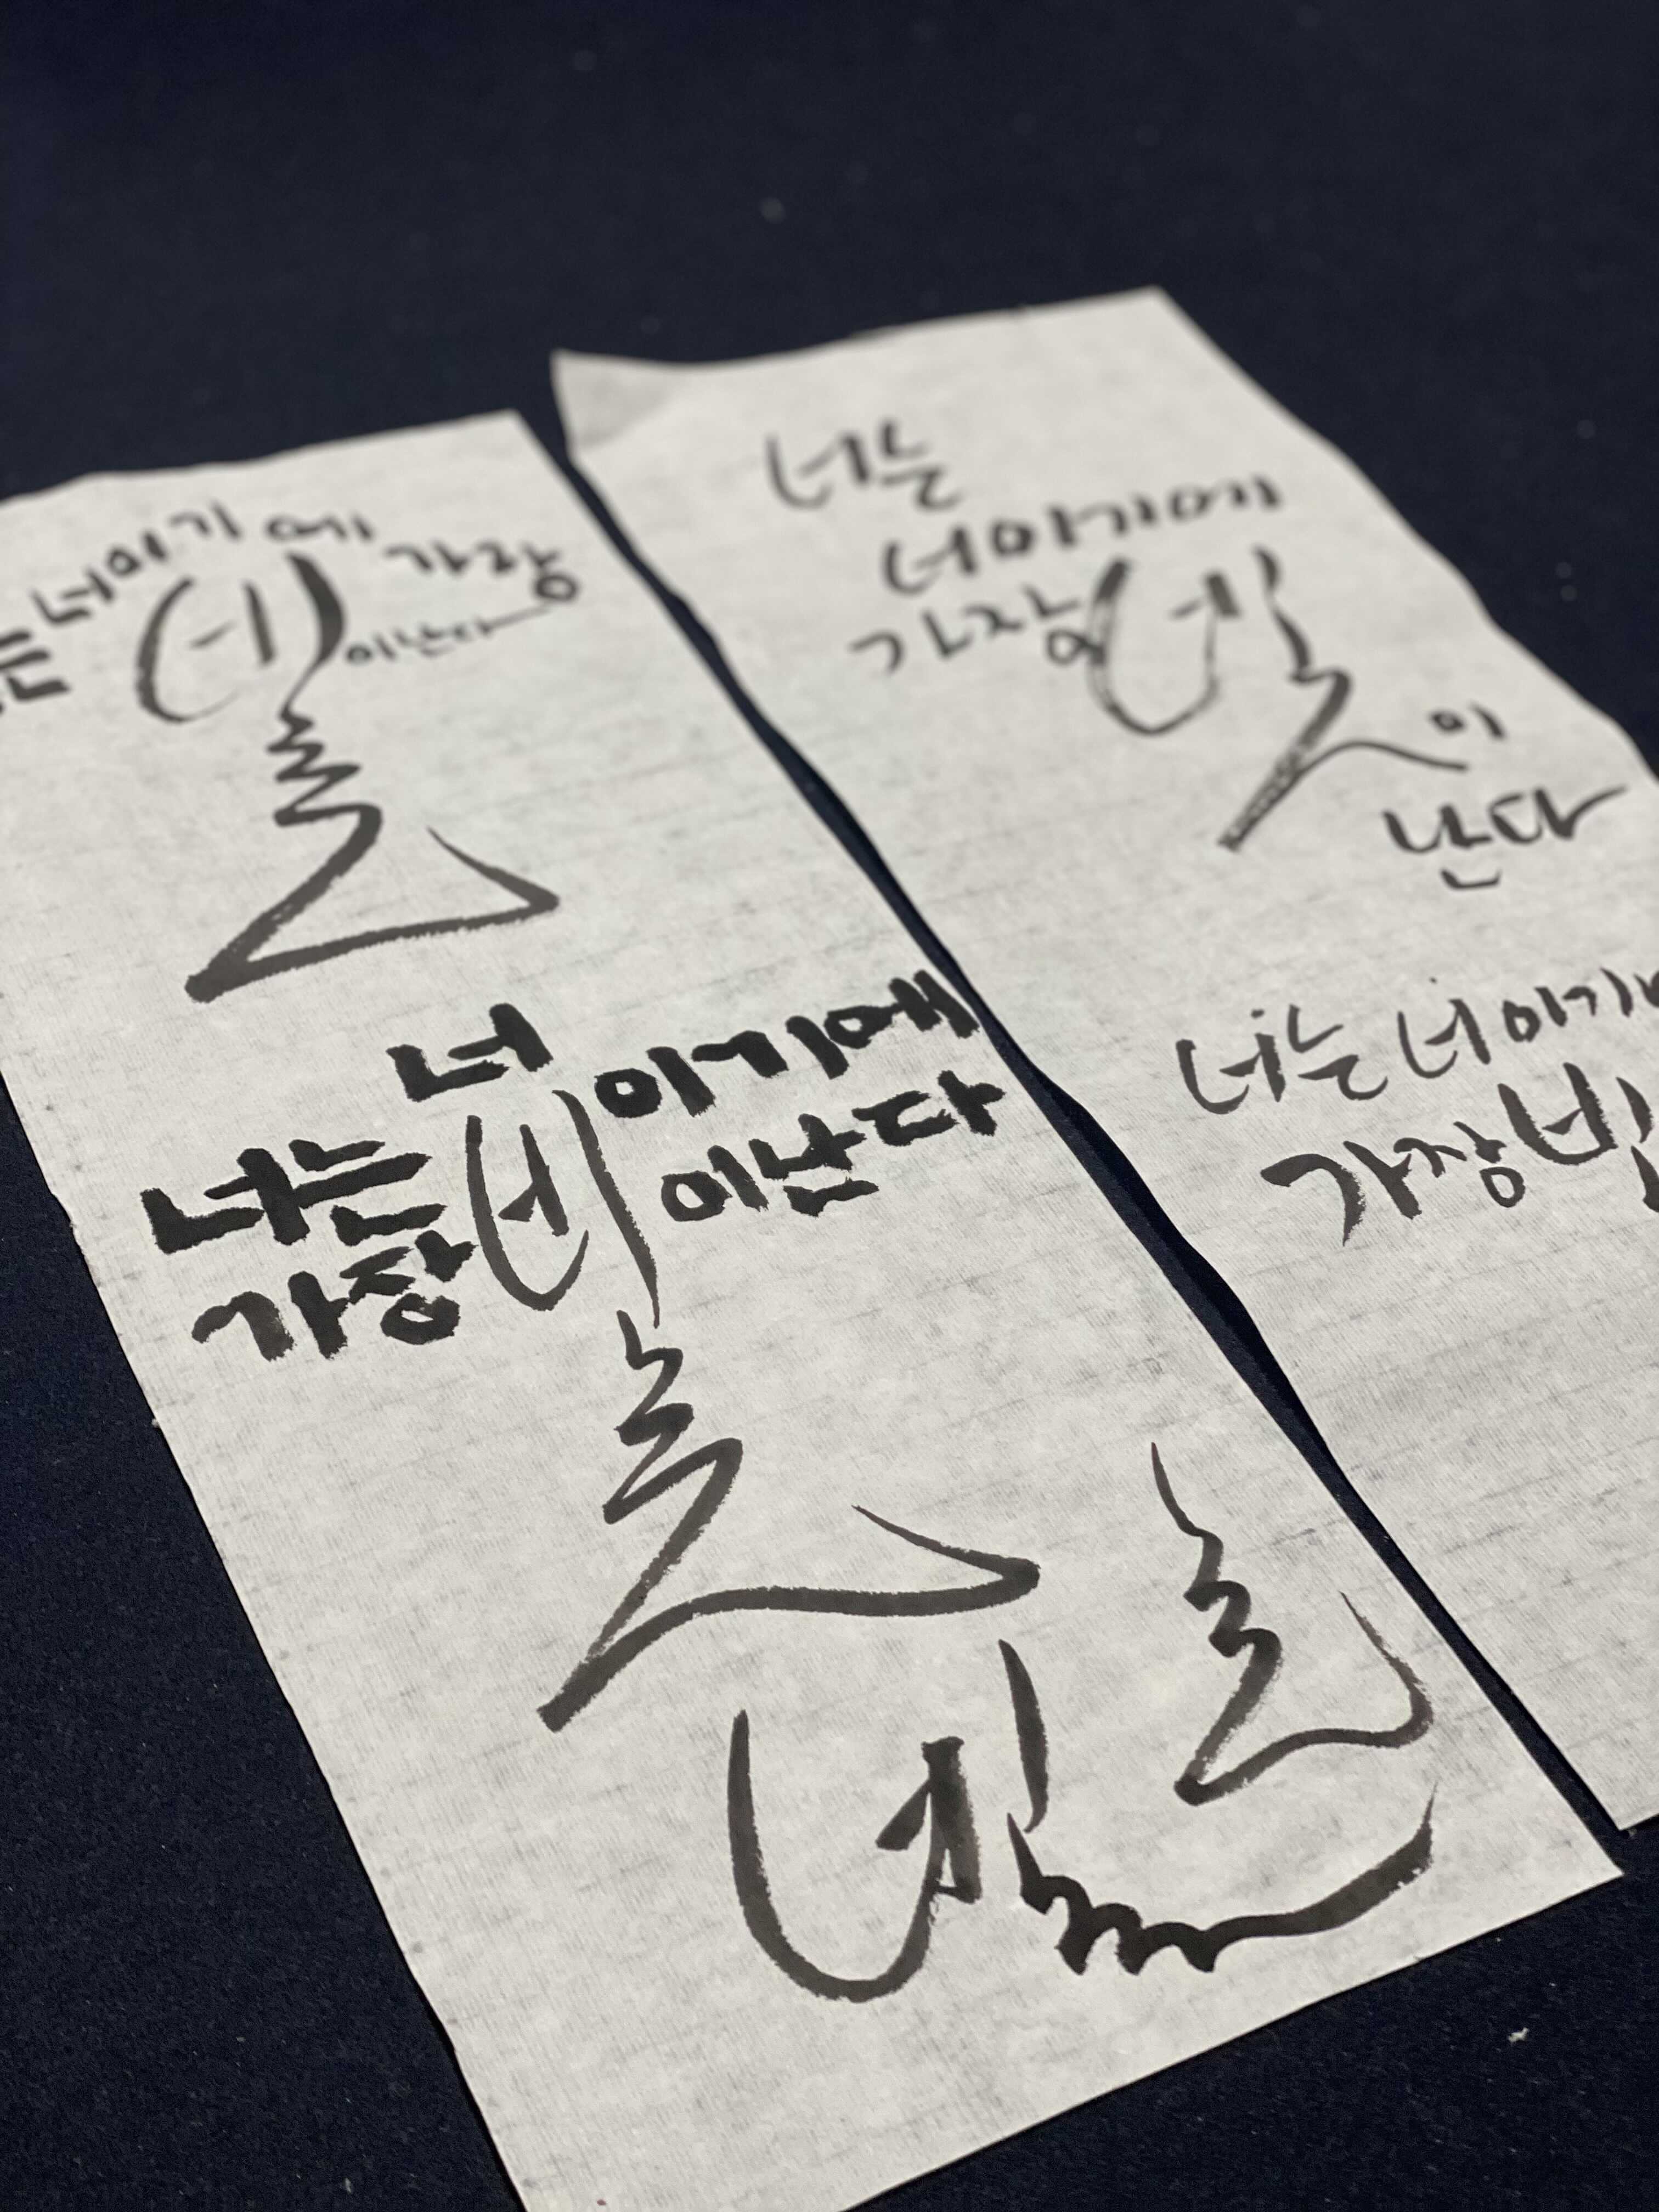 는 너이기에 가장
빛이난다
너는 너이기에
가장 빛이난다
빛
너는
너이기에
가장 빛이
난다
너는 너이기
가장